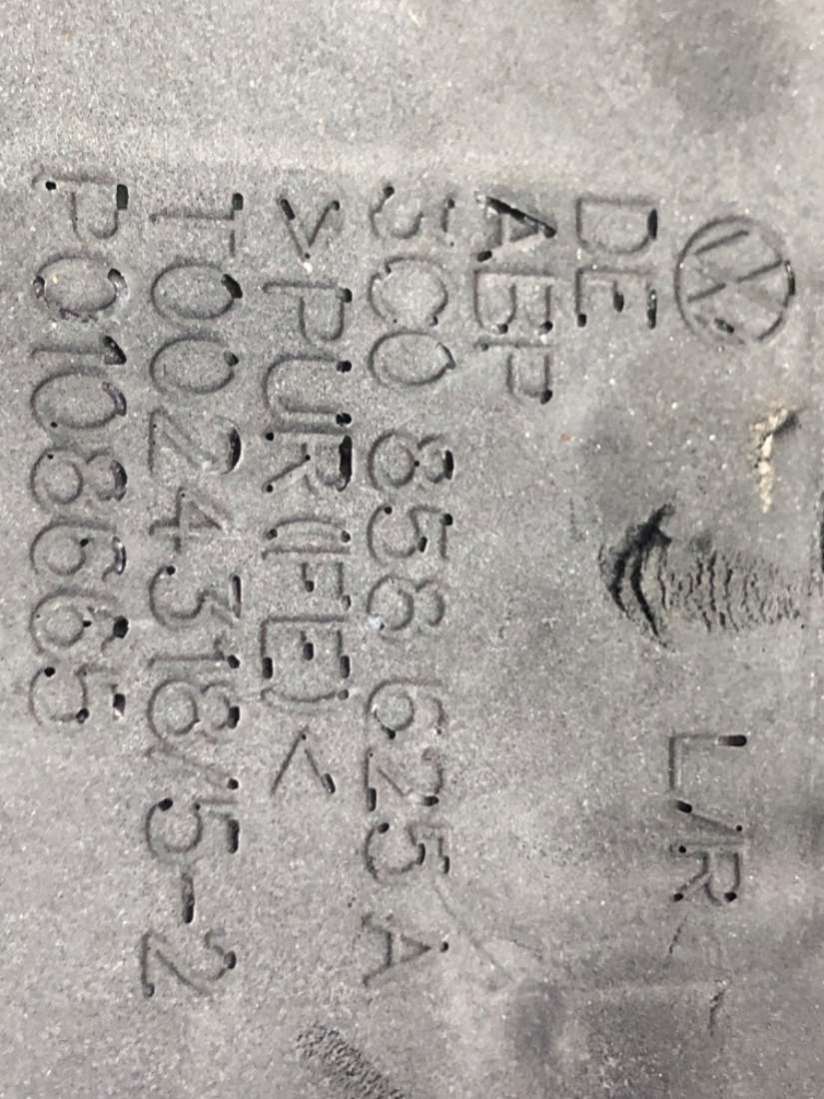 L/R
DE
ABP
3C0 858 625 A
>PUR(FE)<
T0024318/5-2
P0108665